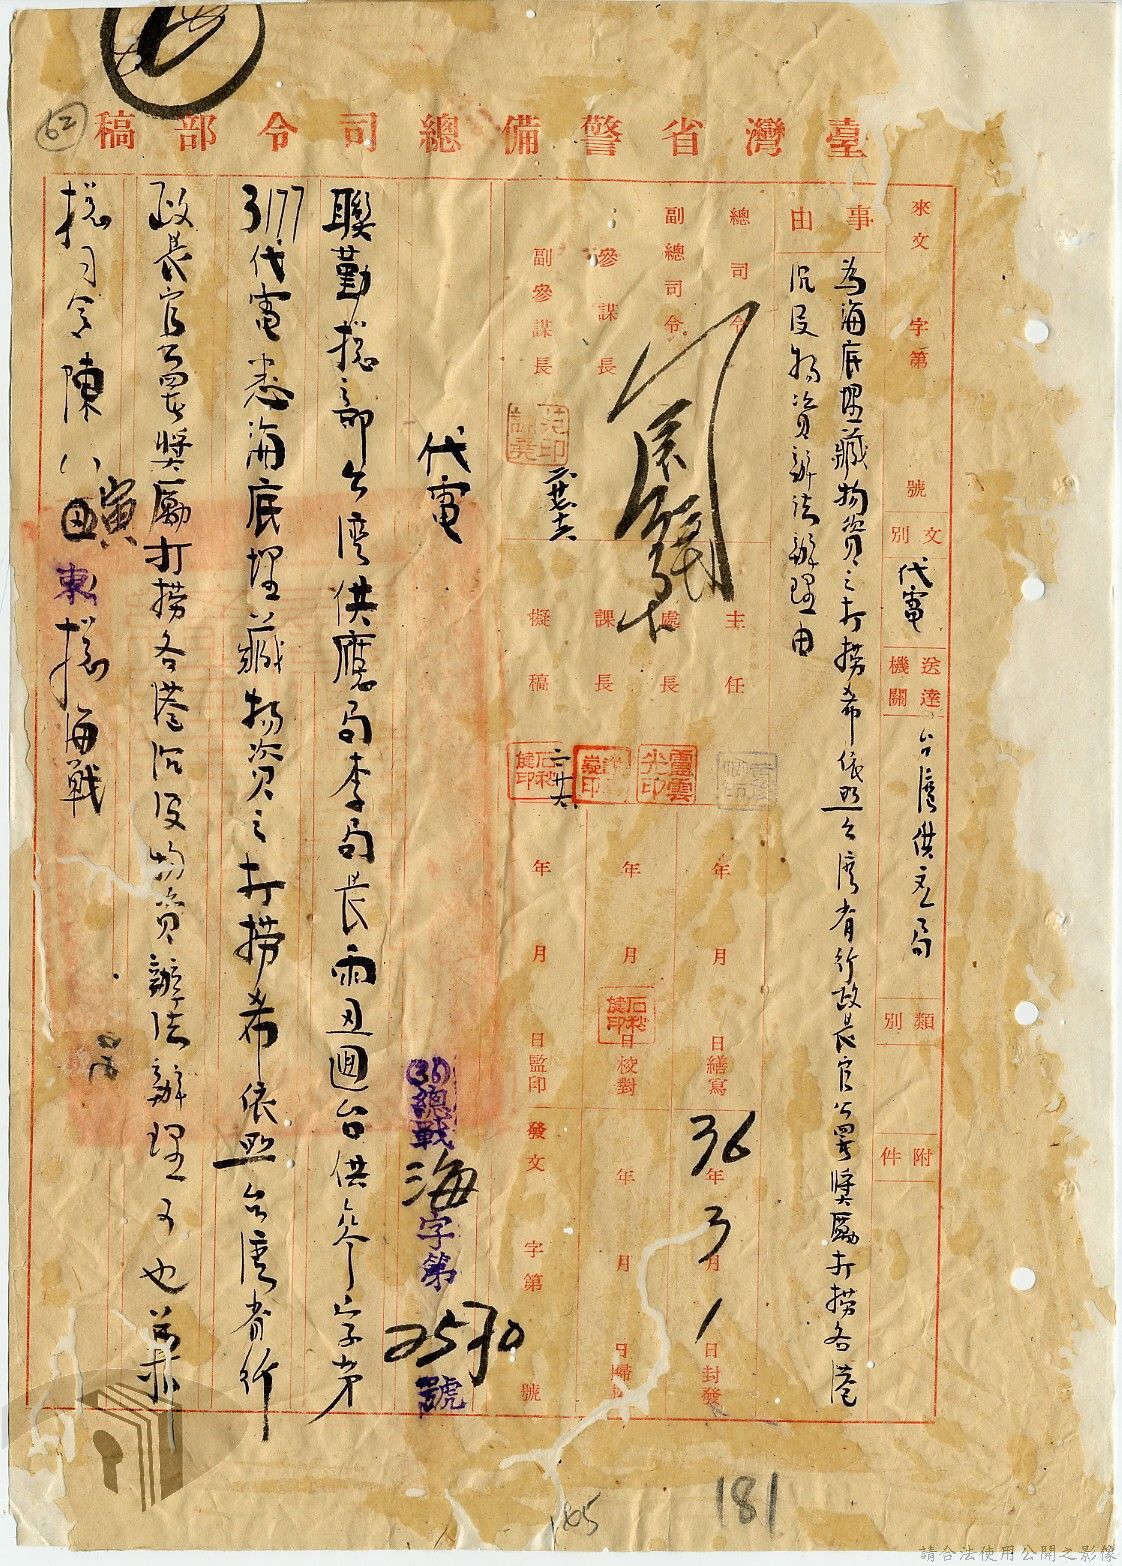 62
臺灣省警備總司令部稿
來文 字第 號
文別 代電
送達機關 台灣供應局
類別
附件
事由
為海底埋藏物資之打撈希依照台灣省行政長官公署獎勵打撈各港
沉沒物資辦法辦理由
總司令
副總司令
參謀長
副參謀長
主任
處長
課長
擬稿
年 月 日繕寫
年 月 日校對
年 月 日監印
36年3月1日封發
年 月 日歸檔
發文 字第 號
代電
(36)總戰海字第2590號
聯勤總部台灣供應局李局長兩丑迴台供參字第
3177代電悉海底埋藏物資之打撈希依照台灣省行
政長官公署獎勵打撈各港沉沒物資辦法辦理可也兼
總司令陳〇寅東總海戰
165
181
請合法使用公開之影像